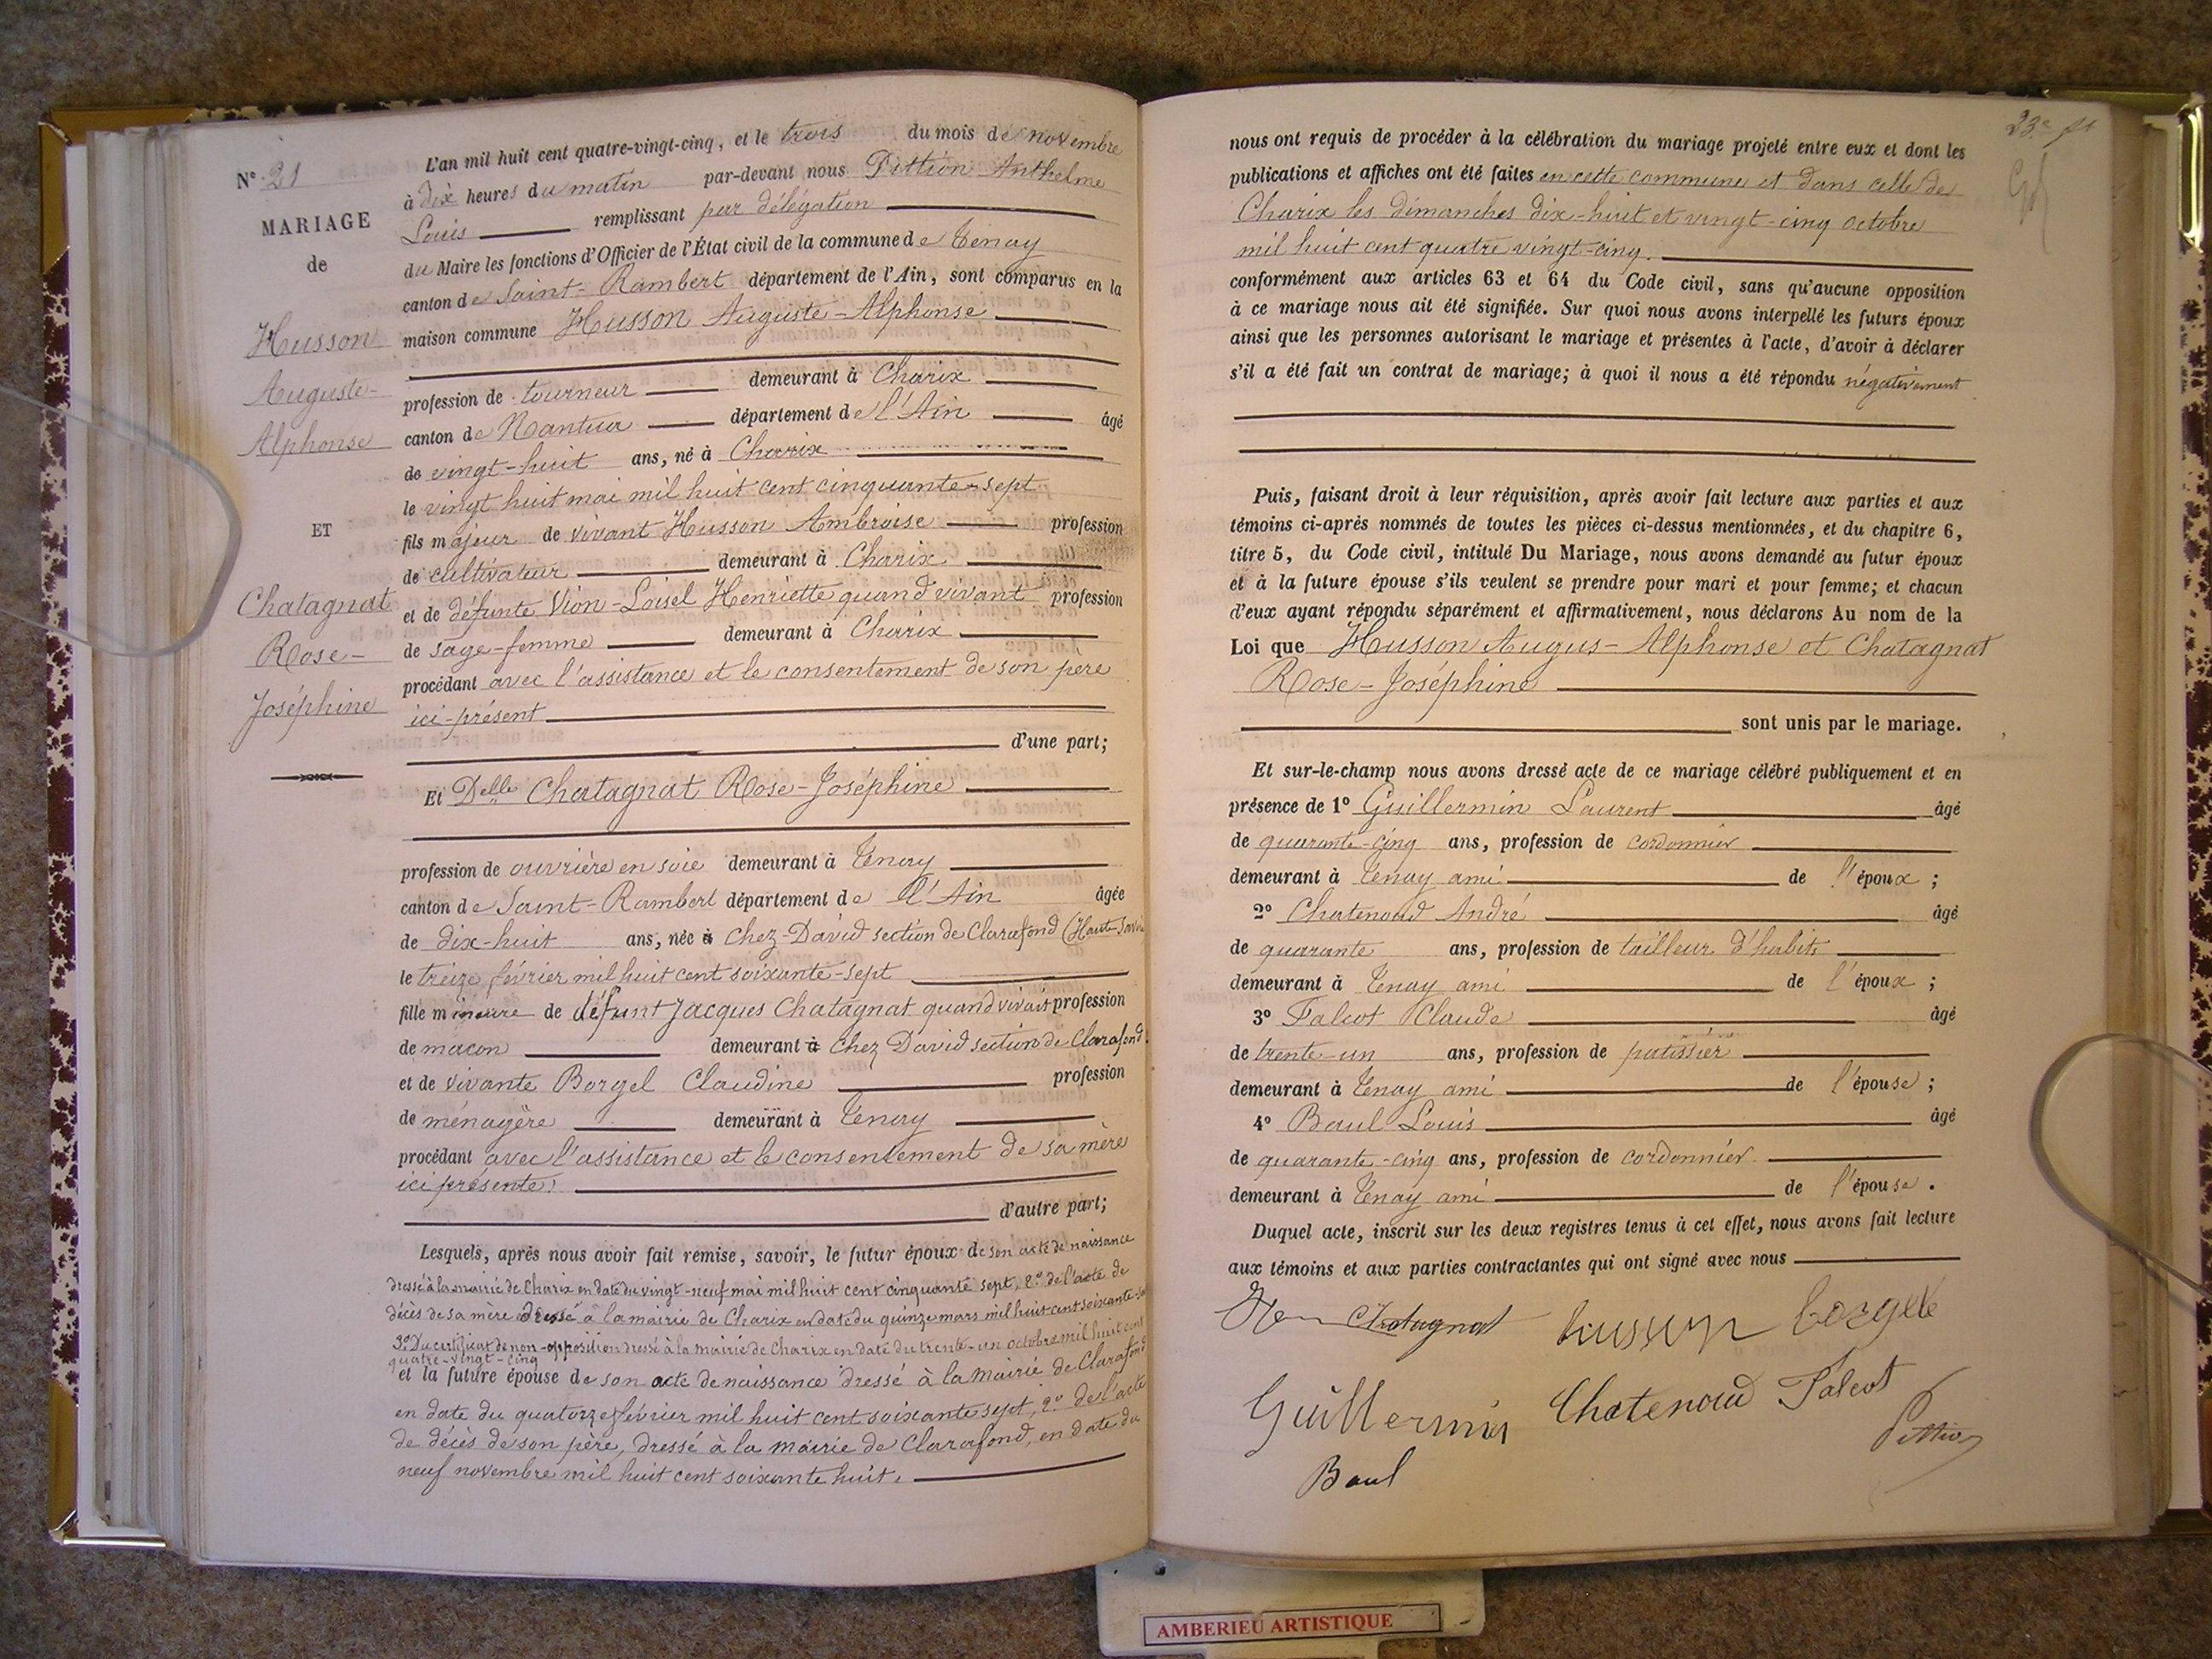 N° 21
MARIAGE
de
Husson
Auguste-
Alphonse
ET
Chatagnat
Rose-
Joséphine
L'an mil huit cent quatre-vingt-cinq, et le trois du mois de novembre
à dix heures du matin par-devant nous Pittion Anthelme
Louis remplissant par délégation
du Maire les fonctions d'Officier de l'État civil de la commune de Tenay
canton de Saint-Rambert département de l'Ain, sont comparus en la
maison commune Husson Auguste-Alphonse
profession de tourneur demeurant à Charix
canton de Nantua département de l'Ain âgé
de vingt-huit ans, né à Charix
le vingt huit mai mil huit cent cinquante-sept
fils majeur de vivant Husson Ambroise profession
de cultivateur demeurant à Charix
et de défunte Vion-Loisel Henriette quand vivant profession
de sage-femme demeurant à Charix
procédant avec l'assistance et le consentement de son père
ici-présent
d'une part;
Et Delle Chatagnat Rose-Joséphine
profession de ouvrière en soie demeurant à Tenay
canton de Saint-Rambert département de l'Ain âgée
de dix-huit ans, née à chez-David section de Clarafond (Haute-Savoie
le treize février mil huit cent soixante-sept
fille mineure de défunt Jacques Chatagnat quand vivait profession
de macon demeurant à chez David section de Clarafond.
et de vivante Borgel Claudine profession
de ménagère demeurant à Tenay
procédant avec l'assistance et le consentement de sa mère
ici présente.
d'autre part;
Lesquels, après nous avoir fait remise, savoir, le futur époux de son acte de naissance
dressé à la mairie de Charix en date du vingt-neuf mai mil huit cent cinquante sept, 2° de l'acte de
décès de sa mère dressé à la mairie de Charix en date du quinze mars mil huit cent soixante
3° Du certificat de non-opposition dressé à la mairie de Charix en date du trente-un octobre mil huit cent
quatre-vingt-cinq
et la future épouse de son acte de naissance dressé à la mairie de Clarafond
en date du quatorze février mil huit cent soixante sept, 2° de l'acte
de décès de son père, dressé à la mairie de Clarafond, en date du
neuf novembre mil huit cent soixante huit.
23e
nous ont requis de procéder à la célébration du mariage projeté entre eux et dont les
publications et affiches ont été faites en cette commune et dans celle de
Charix les dimanches dix-huit et vingt-cinq octobre
mil huit cent quatre vingt-cinq.
conformément aux articles 63 et 64 du Code civil, sans qu'aucune opposition
à ce mariage nous ait été signifiée. Sur quoi nous avons interpellé les futurs époux
ainsi que les personnes autorisant le mariage et présentes à l'acte, d'avoir à déclarer
s'il a été fait un contrat de mariage; à quoi il nous a été répondu négativement
Puis, faisant droit à leur réquisition, après avoir fait lecture aux parties et aux
témoins ci-après nommés de toutes les pièces ci-dessus mentionnées, et du chapitre 6,
titre 5, du Code civil, intitulé Du Mariage, nous avons demandé au futur époux
et à la future épouse s'ils veulent se prendre pour mari et pour femme; et chacun
d'eux ayant répondu séparément et affirmativement, nous déclarons Au nom de la
Loi que Husson Augus-Alphonse et Chatagnat
Rose-Joséphine
sont unis par le mariage.
Et sur-le-champ nous avons dressé acte de ce mariage célébré publiquement et en
présence de 1° Guillermin Laurent âgé
de quarante-cinq ans, profession de cordonnier
demeurant à Tenay ami de l'époux ;
2° Chatenoud André âgé
de quarante ans, profession de tailleur d'habits
demeurant à Tenay ami de l'époux ;
3° Falcot Claude âgé
de trente-un ans, profession de patissier
demeurant à Tenay ami de l'épouse ;
4° Baul Louis âgé
de quarante-cinq ans, profession de cordonnier
demeurant à Tenay ami de l'épouse.
Duquel acte, inscrit sur les deux registres tenus à cet effet, nous avons fait lecture
aux témoins et aux parties contractantes qui ont signé avec nous
Chatagnat husson borgele
Guillermin Chatenoud Falcot
Pittion
Baul
AMBERIEU ARTISTIQUE